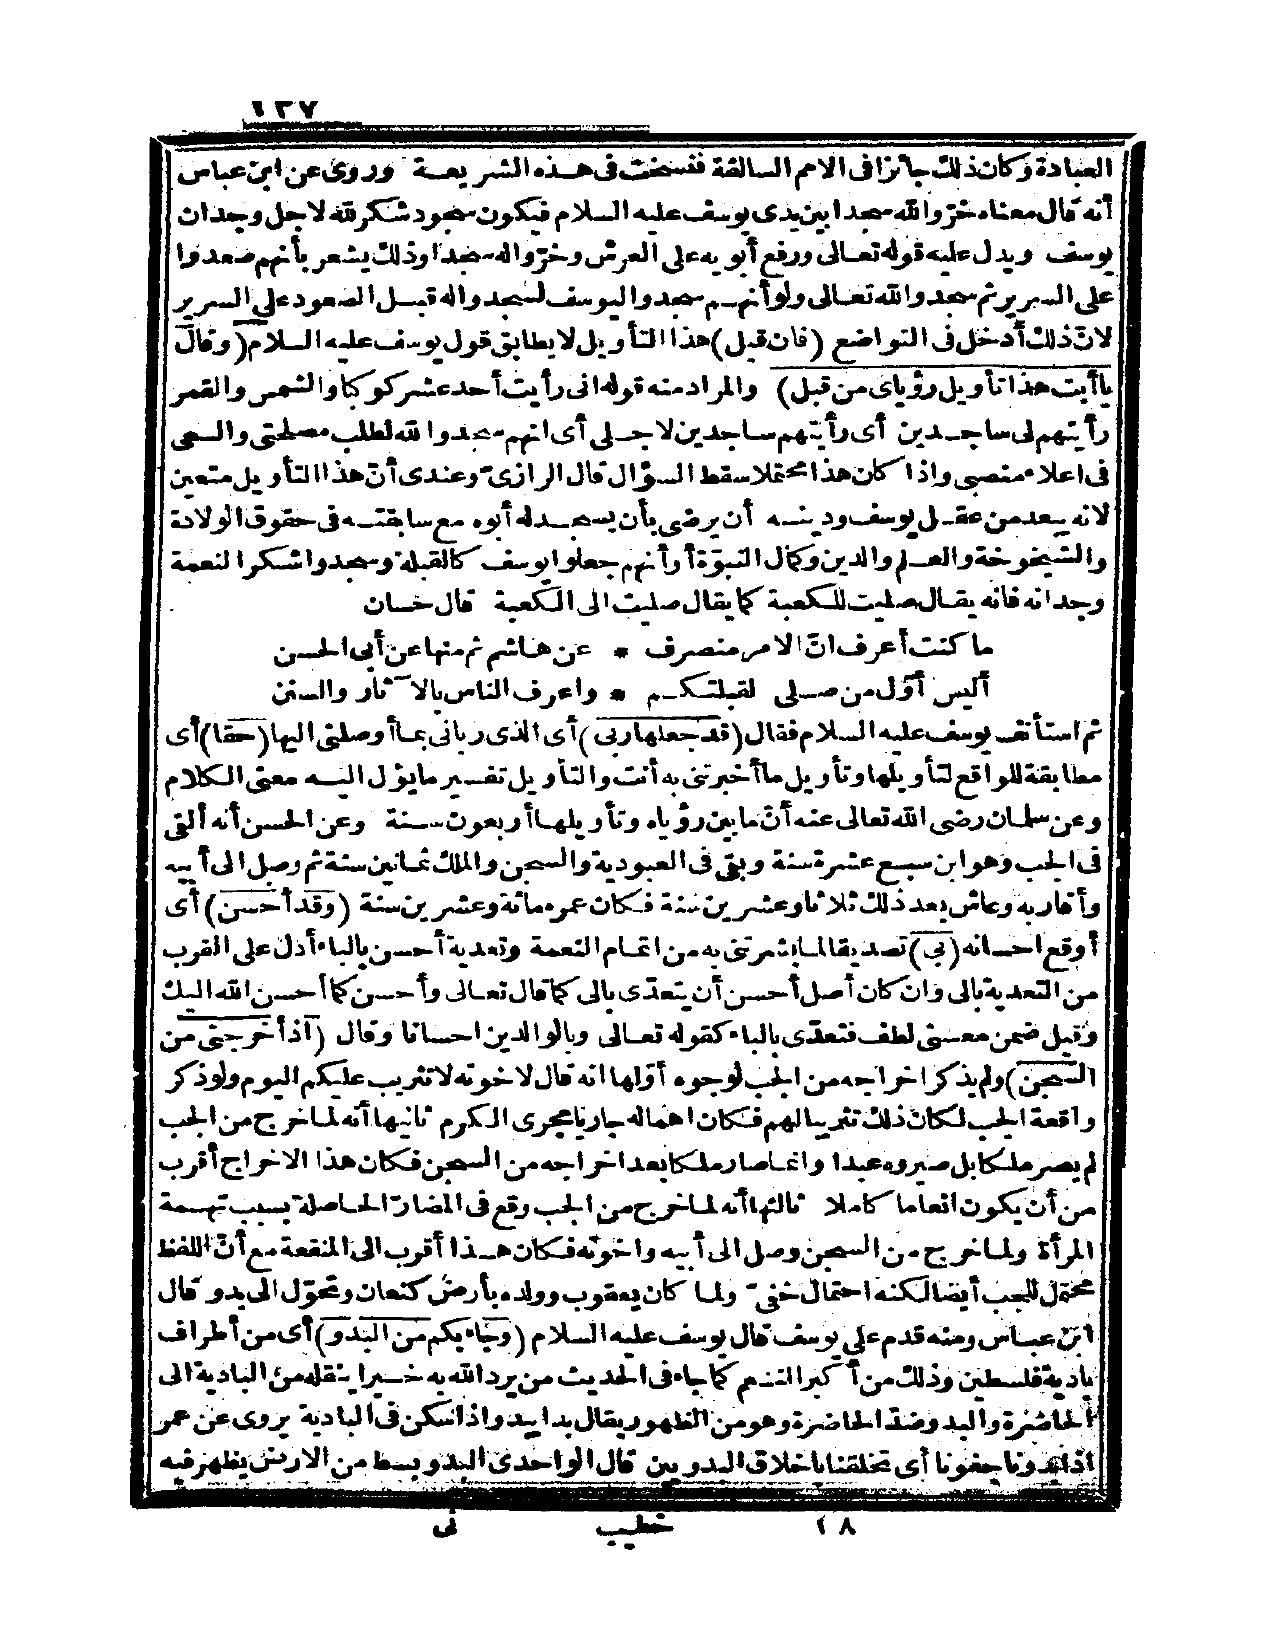 ١٣٧
العبادة وكان ذلك جائزا فى الامم السالفة فنسخت فى هذه الشريعة وروى عن ابن عباس
أنه قال معناه خرّوا لله سجدا بين يدى يوسف عليه السلام فيكون سجود شكر لله لاجل وجدان
يوسف ويدل عليه قوله تعالى ورفع أبويه على العرش وخرّوا له سجدا وذلك يشعر بأنهم صعدوا
على السرير ثم سجدوا لله تعالى ولو أنهم سجدوا ليوسف لسجدوا له قبل الصعود على السرير
لانّ ذلك أدخل فى التواضع (فان قيل) هذا التأويل لا يطابق قول يوسف عليه السلام (وقال
يا أبت هذا تأويل رؤياى من قبل) والمراد منه قوله انى رأيت أحد عشر كوكا والشمس والقمر
رأيتهم لى ساجدين أى رأيتهم ساجدين لاجلى أى انهم سجدوا لله لطلب مصلحتى والسعى
فى اعلاء منصبى واذا كان هذا محتملا سقط السؤال قال الرازىّ وعندى أنّ هذا التأويل متعين
لانه يبعد من عقل يوسف ودينه أن يرضى بأن يسجد له أبوه مع سابقته فى حقوق الولادة
والشيخوخة والعلم والدين وكمال النبوّة أو أنهم جعلوا يوسف كالقبلة وسجدوا شكرا لنعمة
وجدانه فانه يقال صليت للكعبة كما يقال صليت الى الكعبة قال حسان
ما كنت أعرف انّ الامر منصرف * عن هاشم ثم منها عن أبى الحسن
أليس أوّل من صلى لقبلتكم * واعرف الناس بالآثار والسنن
ثم استأنف يوسف عليه السلام فقال (قد جعلها ربى) أى الذى ربانى بما أوصلنى اليها (حقا) أى
مطابقة للواقع لتأويلها وتأويل ما أخبرتنى به أنت والتأويل تفسير ما يؤل اليه معنى الكلام
وعن سلمان رضى الله تعالى عنه أنّ ما بين رؤياه وتأويلها أربعون سنة وعن الحسن أنه ألقى
فى الجب وهو ابن سبع عشرة سنة وبقى فى العبودية والسجن والملك ثمانين سنة ثم وصل الى أبيه
وأقاربه وعاش بعد ذلك ثلاثا وعشرين سنة فكان عمره مائة وعشرين سنة (وقد أحسن) أى
أوقع احسانه (بى) تصديقا لما بشرتنى به من اتمام النعمة وتعدية أحسن بالباء أدل على القرب
من التعدية بالى وان كان أصل أحسن أن يتعدّى بالى كما قال تعالى وأحسن كما أحسن الله اليك
وقيل ضمن معنى لطف فتعدّى بالباء كقوله تعالى وبالوالدين احسانا وقال (اذ أخرجنى من
السجن) ولم يذكر اخراجه من الجب لوجوه أوّلها انه قال لاخوته لا تثريب عليكم اليوم ولو ذكر
واقعة الجب لكان ذلك تثريبا لهم فكان اهماله جاريا مجرى الكرم ثانيها أنه لما خرج من الجب
لم يصر ملكا بل صيروه عبدا وانما صار ملكا بعد اخراجه من السجن فكان هذا الاخراج أقرب
من أن يكون انعاما كاملا ثالثها أنه لما خرج من الجب وقع فى المضارّ الحاصلة بسبب تهمة
المرأة ولما خرج من السجن وصل الى أبيه واخوته فكان هذا أقرب الى المنفعة مع أنّ اللفظ
محتمل للجب أيضا لكنه احتمال خفىّ ولما كان يعقوب وولده بأرض كنعان وتحوّل الى بدو قال
ابن عباس ومنه قدم على يوسف قال يوسف عليه السلام (وجاء بكم من البدو) أى من أطراف
بادية فلسطين وذلك من أكبر النعم كما جاء فى الحديث من يرد الله به خيرا ينقله من البادية الى
الحاضرة والبدو ضدّ الحاضرة وهو من الظهور يقال بدا يبدو اذا سكن فى البادية يروى عن عمر
اذا بدونا جفونا أى تخلقنا باخلاق البدويين قال الواحدى البدو بسط من الارض يظهر فيه
١٨ خطيب نى